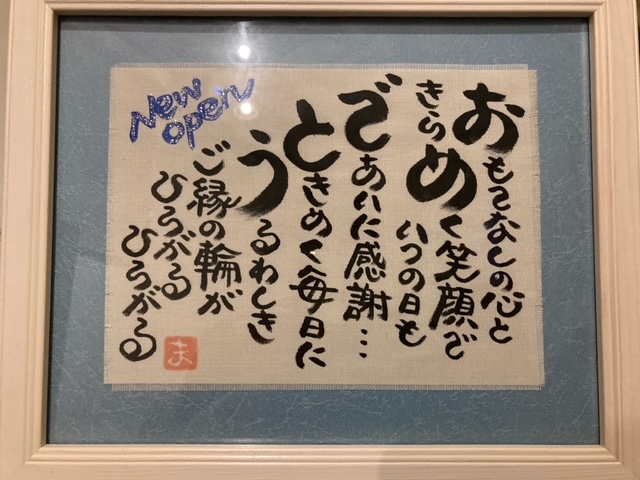 おもてなしの心と
きらめく笑顔で
いつの日も
であいに感謝…
ときめく毎日に
うるわしき
ご縁の輪が
ひろがる
ひろがる
New
open
ま